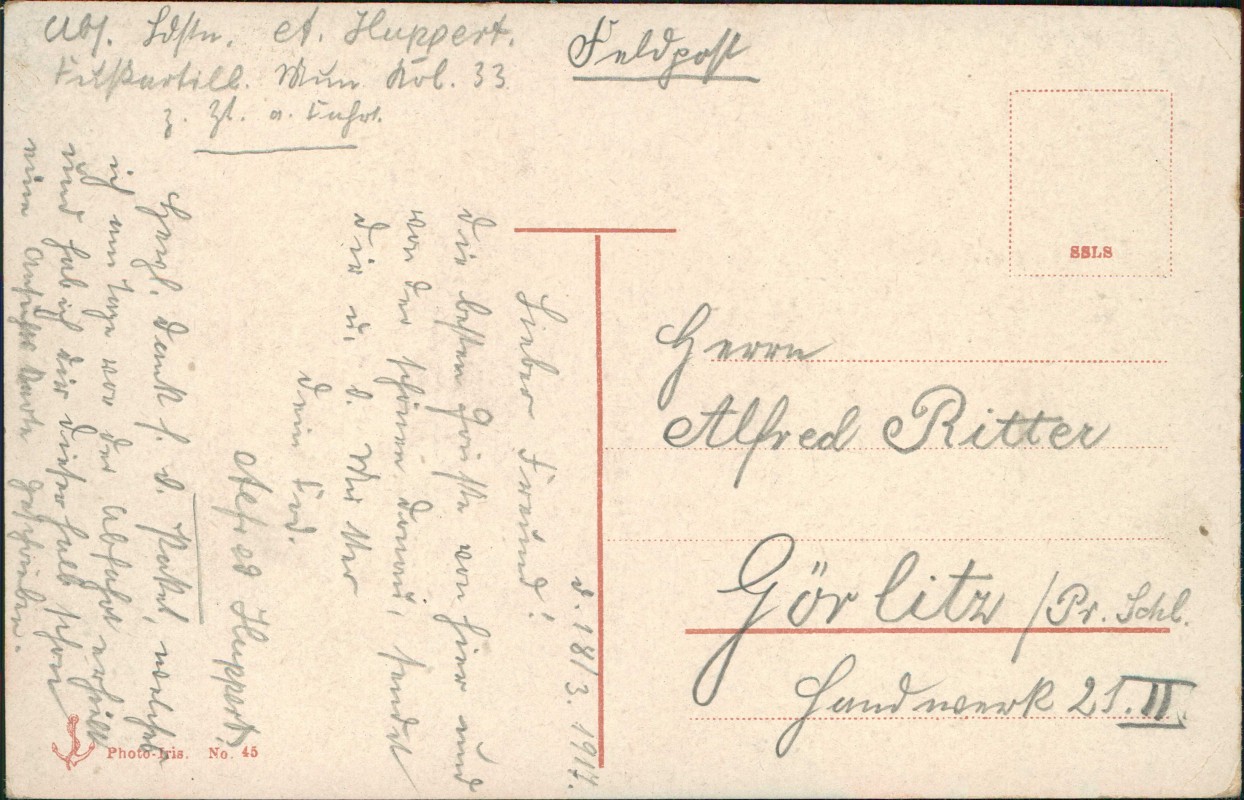 Abs. Ldstm. A. Huppert.
Mun. Kol. 33
z. Zt. a. Fahrt.
Feldpost
SSLS
Herrn
Alfred Ritter
Görlitz / Pr. Schl.
Handwerk 21. II.
d. 18/3. 1917.
Lieber Freund!
Die besten Grüße von hier und
von der schönen Donau, sendet
Dir u. d. Mutter
Dein Frd.
Alfred Huppert.
Herzl. Dank f. d. Paket, welches
ich am Tage vor der Abfahrt erhielt
und hab ich Dir dieserhalb schon
eine Ansichtskarte geschrieben.
Photo-Iris. No. 45